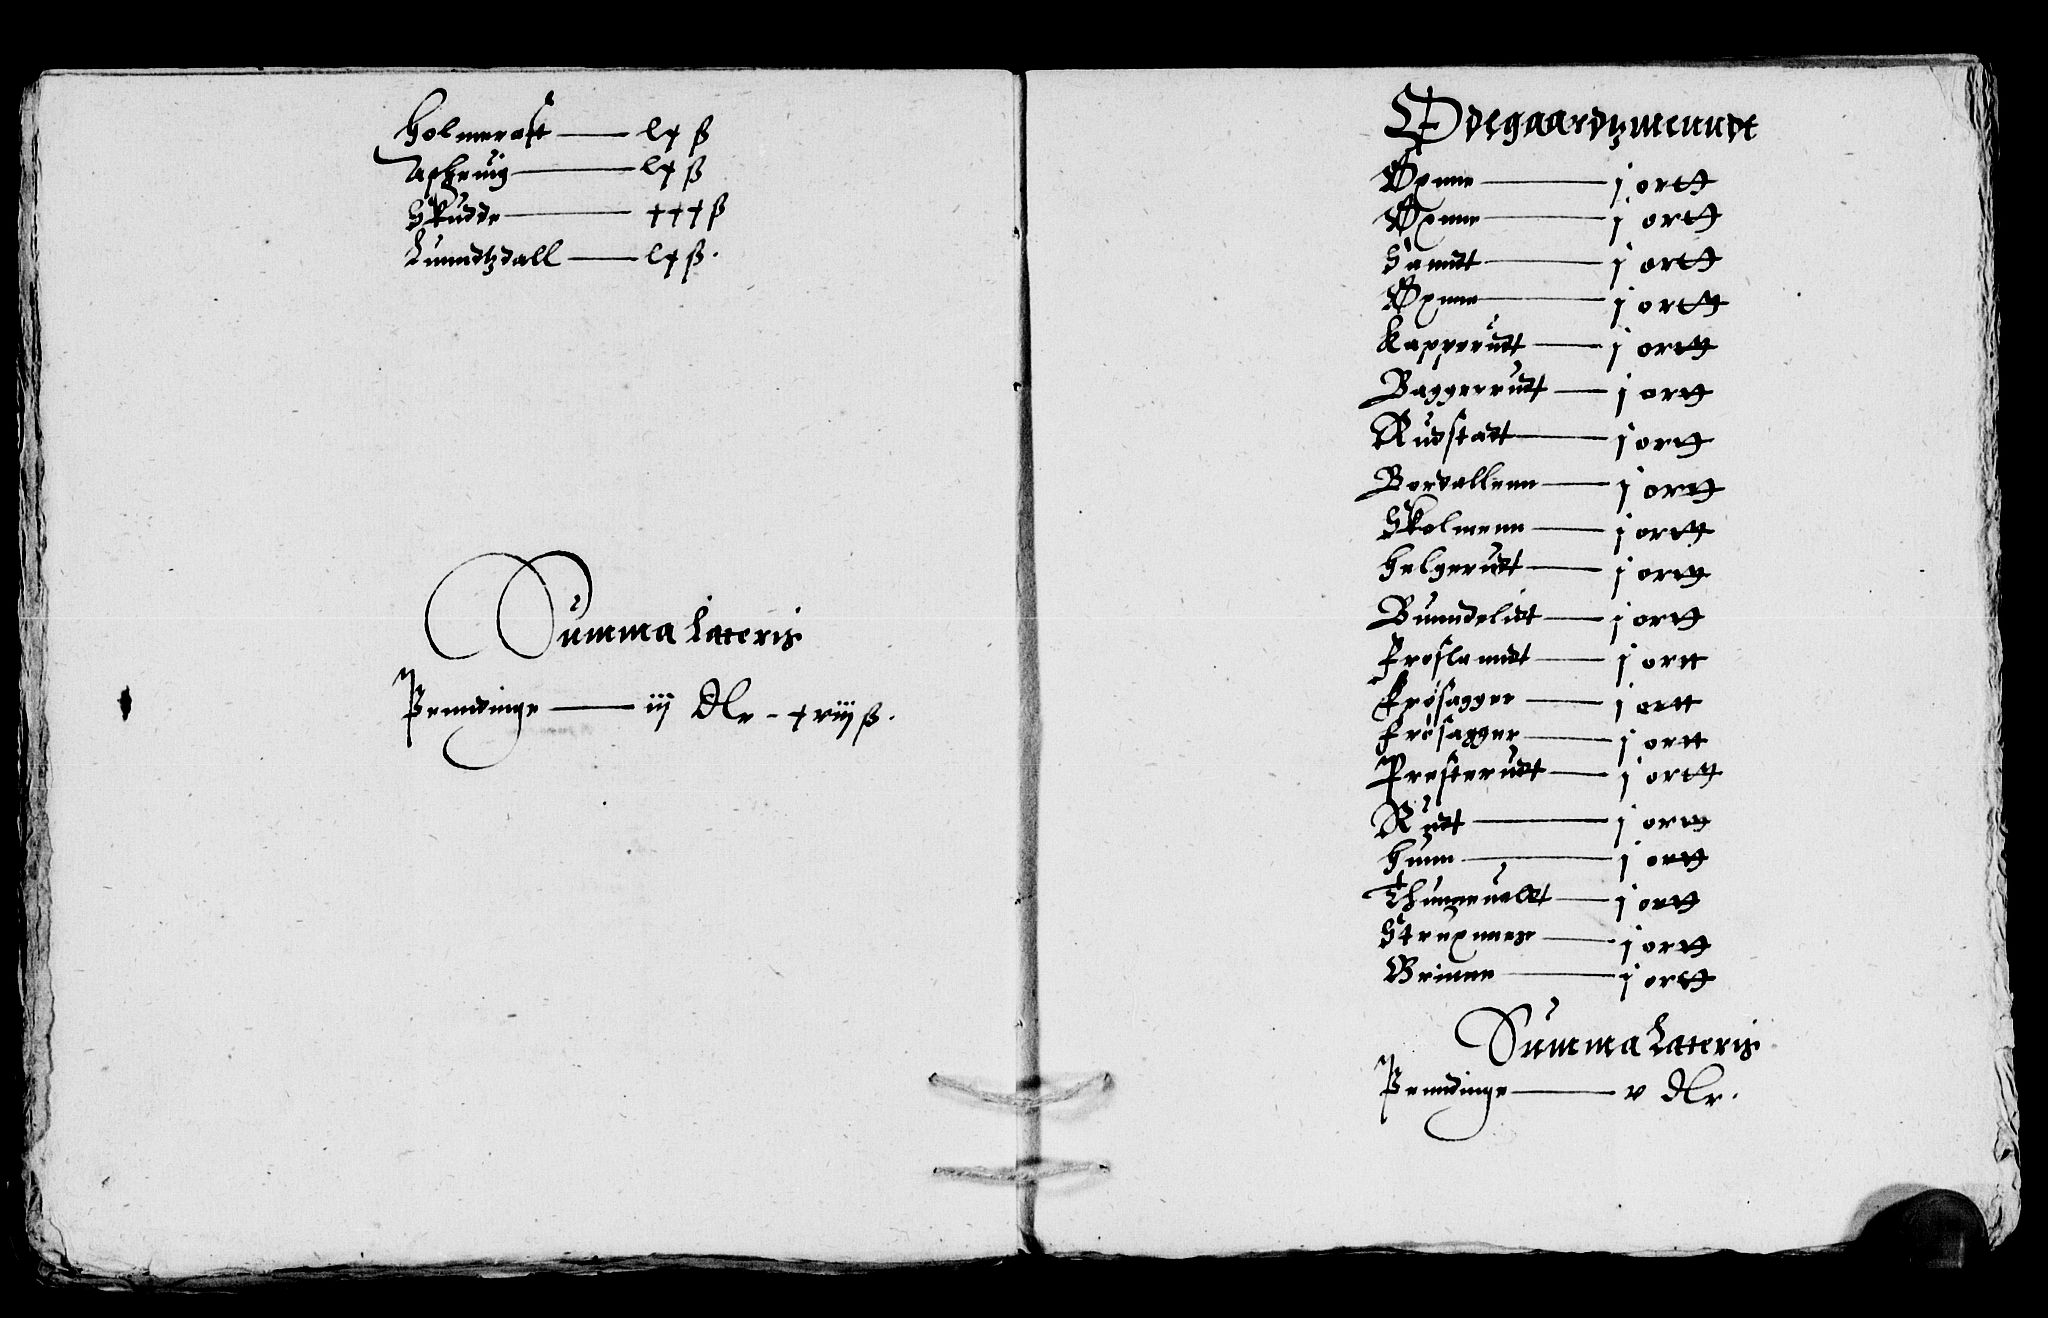 Holmerast — lx ß
Askeuig — lx ß
Skudde — xxx ß
Lunndtzdall — lx ß.
Summa Lateris
Penndinge — iij dlr - xviij ß.
Ødegaardtzmenndt
Oxnne — j ortt
Oxnne — j ortt
Sanndt — j ortt
Oxnne — j ortt
Kapperudt — j ortt
Baggerrudt — j ortt
Rudstadt — j ortt
Bordallenn — j ortt
Skolmenn — j ortt
Helgerudt — j ortt
Bunndelidt — j ortt
Frøslanndt — j ortt
Frøsagger — j ortt
Frøsagger — j ortt
Presterudt — j ortt
Rudt — j ortt
Hunn — j ortt
j ortt
j ortt
Brinne — j ortt
Summa Lateris
Penndinge — v dlr.